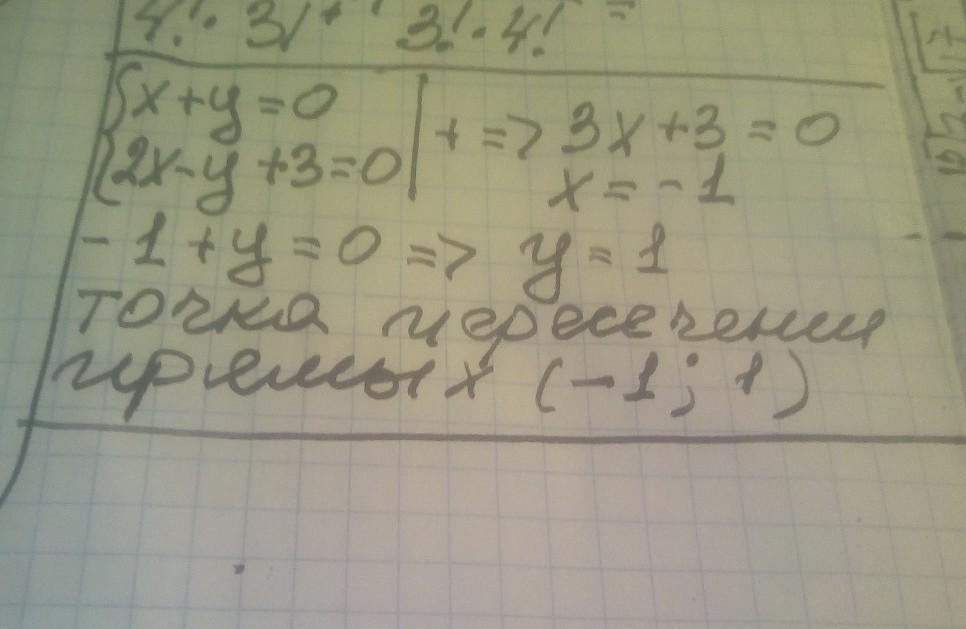 4! · 3! + 3! · 4! =
{x+y=0 | + => 3x+3=0
{2x-y+3=0 | x=-1
-1+y=0 => y=1
точка пересечения
прямых (-1; 1)